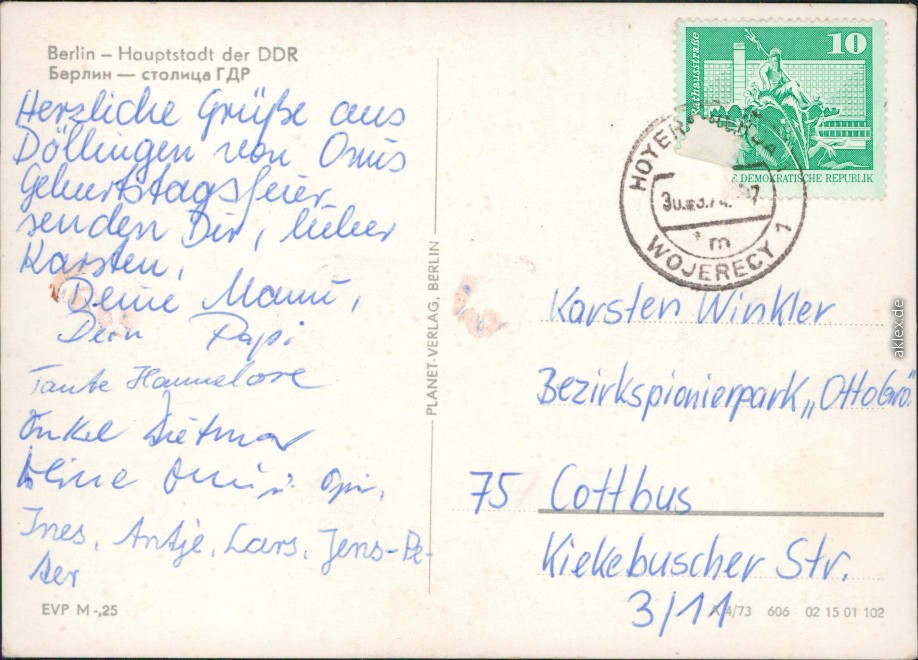 Berlin – Hauptstadt der DDR
Берлин — столица ГДР
Herzliche Grüße aus
Döllingen von Omis
Geburtstagsfeier
senden Dir, lieber
Karsten,
Deine Mami,
Dein Papi
Tante Hannelore
Onkel Dietmar
Deine Omi u. Opi,
Ines, Antje, Lars, Jens-Pe-
ter
EVP M -,25
PLANET-VERLAG, BERLIN
Rathausstraße
10
DEMOKRATISCHE REPUBLIK
WOJERECY 1
m
Karsten Winkler
Bezirkspionierpark „Ottogro"
75 Cottbus
Kiekebuscher Str.
3/11
4/73 606 02 15 01 102
aklex.de